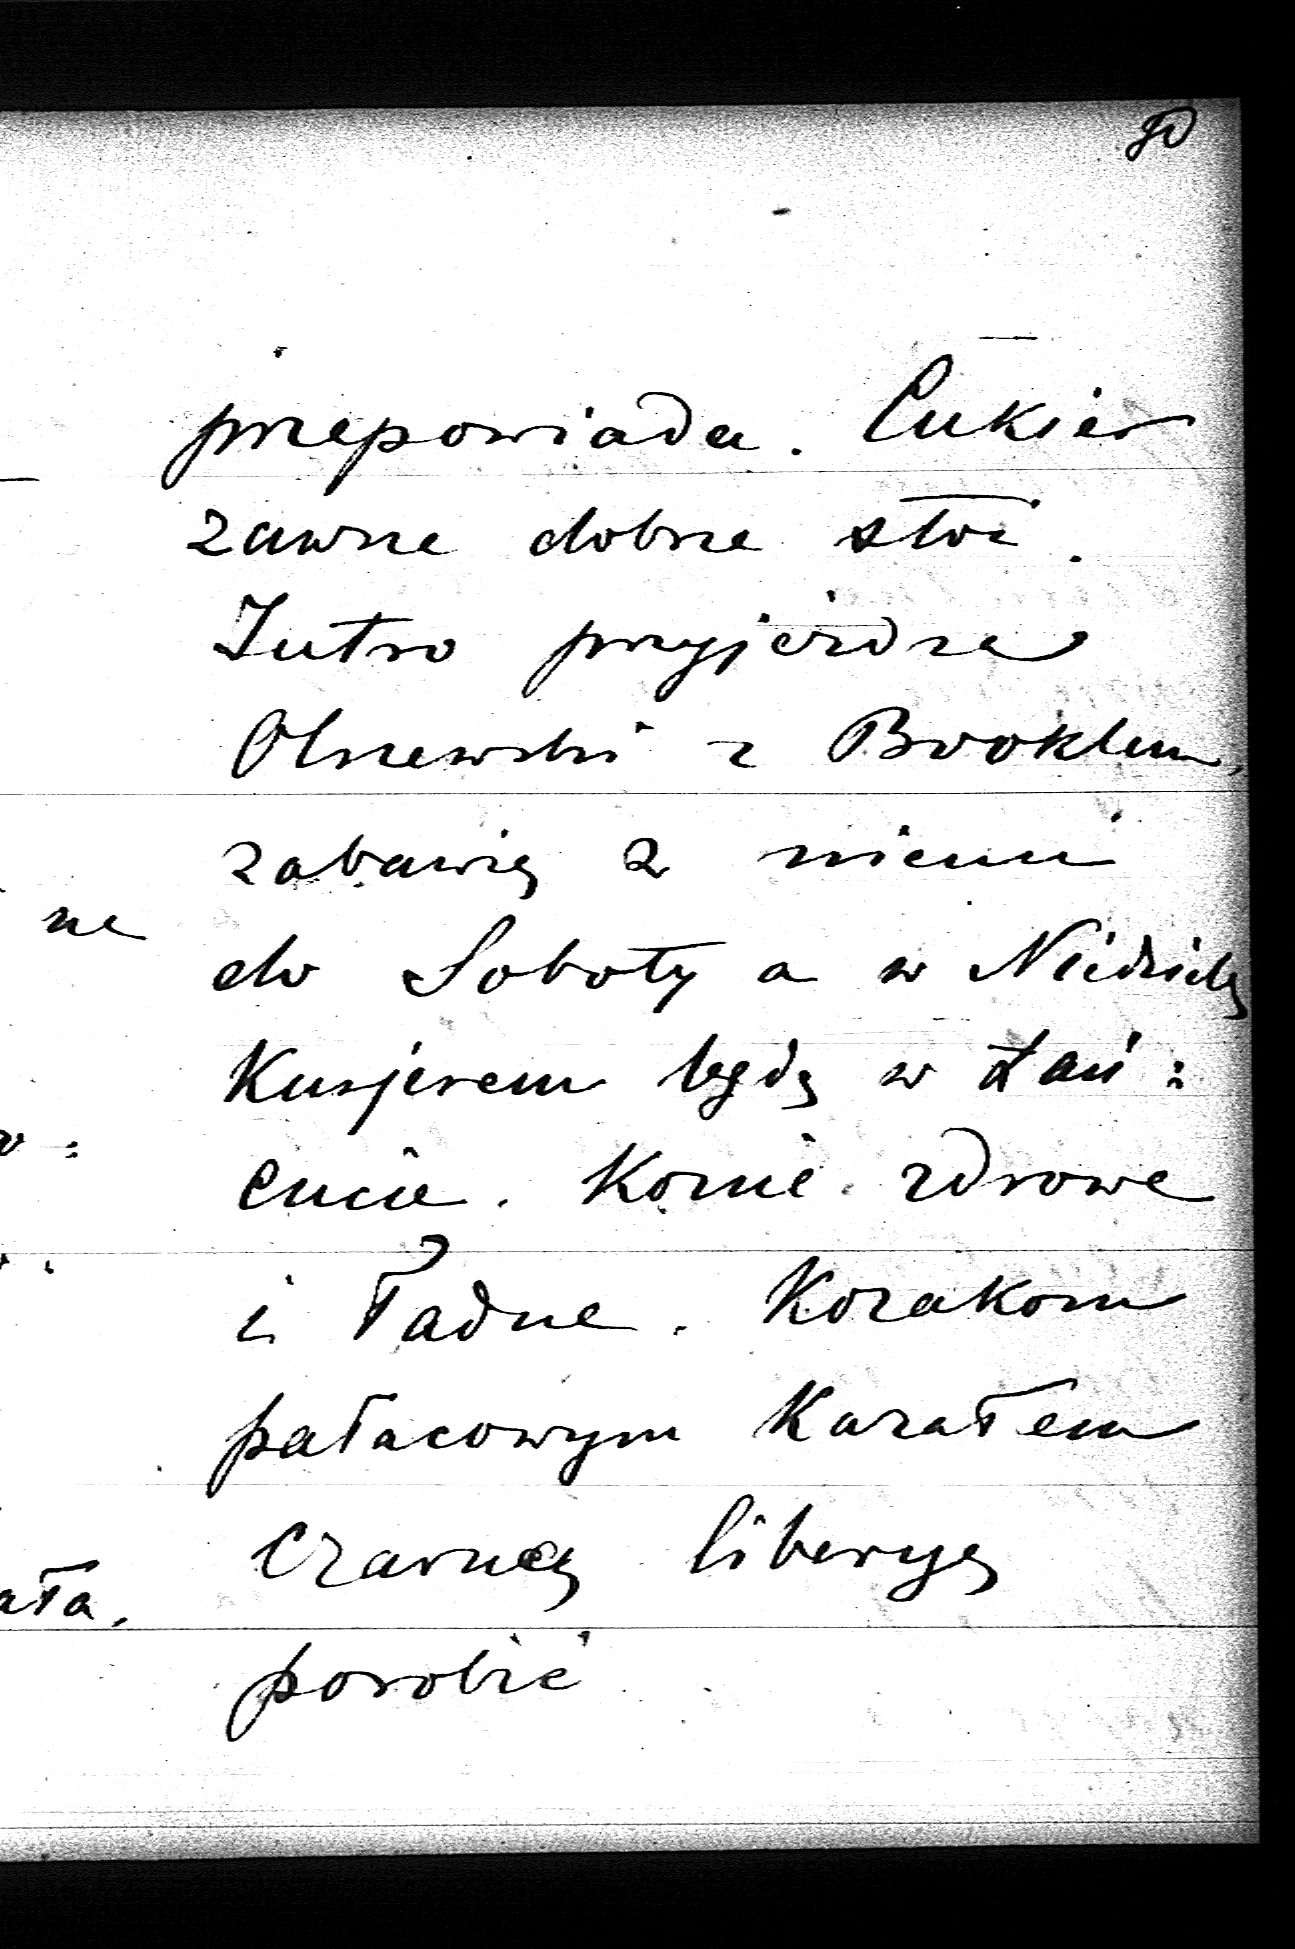 50
przepowiada. Cukier
zawsze dobrze stoi.
Jutro przyjeżdża
Olszewski z Brooklem,
zabawię z niemi
do Soboty a w Niedzielę
Kurjerem będę w Łań:
cucie. Konie zdrowe
i ładne. Kozakom
pałacowym kazałem
czarną liberyę
porobić
ne
ała.